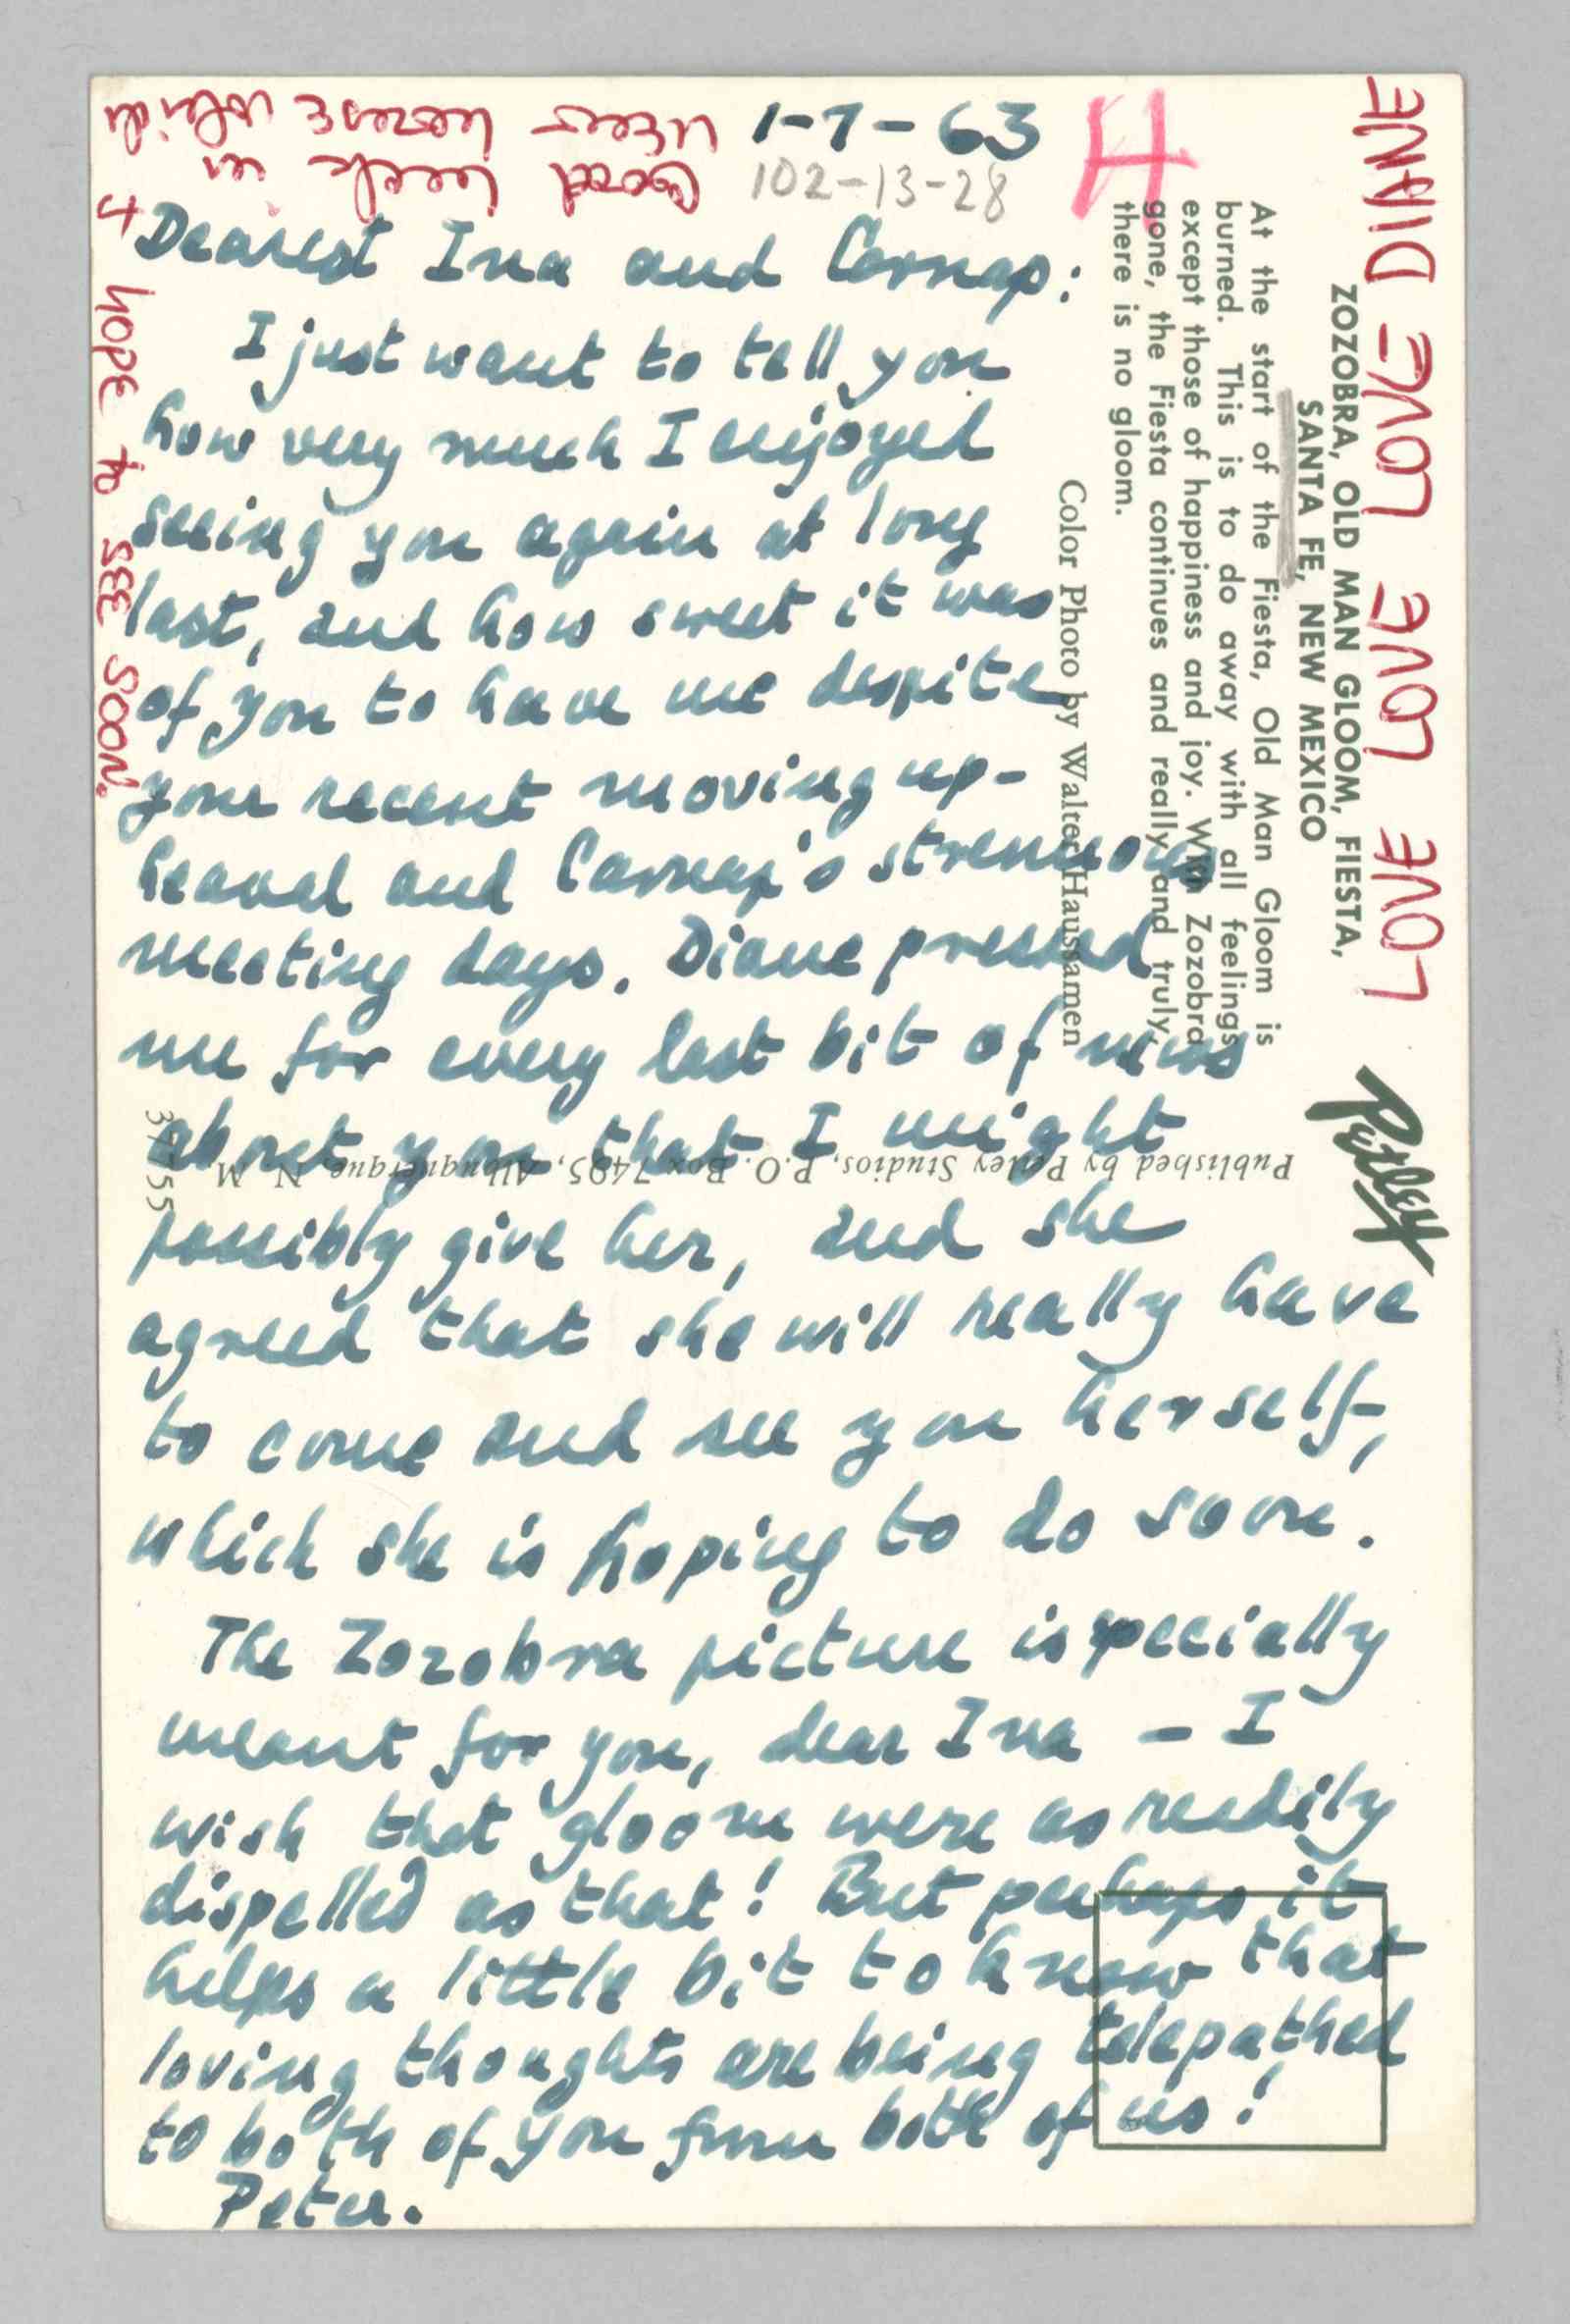 1-7-63
102-13-28
H
Dearest Ina and Carnap:
I just want to tell you
how very much I enjoyed
seeing you again at long
last, and how sweet it was
of you to have me despite
your recent moving up-
heaval and Carnap's strenuous
meeting days. Diane pressed
me for every last bit of news
about you that I might
possibly give her, and she
agreed that she will really have
to come and see you herself,
which she is hoping to do soon.
The Zozobra picture is specially
meant for you, dear Ina – I
wish that gloom were as readily
dispelled as that! But perhaps it
helps a little bit to know that
loving thoughts are being telepathed
to both of you from both of us!
Peter.
Good luck in
NEW house which
+ HOPE to SEE SOON.
LOVE LOVE LOVE DIANE
ZOZOBRA, OLD MAN GLOOM, FIESTA,
SANTA FE, NEW MEXICO
At the start of the Fiesta, Old Man Gloom is
burned. This is to do away with all feelings
except those of happiness and joy. With Zozobra
gone, the Fiesta continues and really and truly,
there is no gloom.
Color Photo by Walter Haussamen
Published by Petley Studios, P.O. Box 7495, Albuquerque, N. M.
Petley